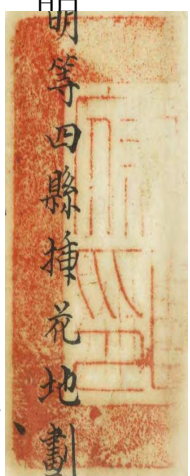 明等四縣插花地劃